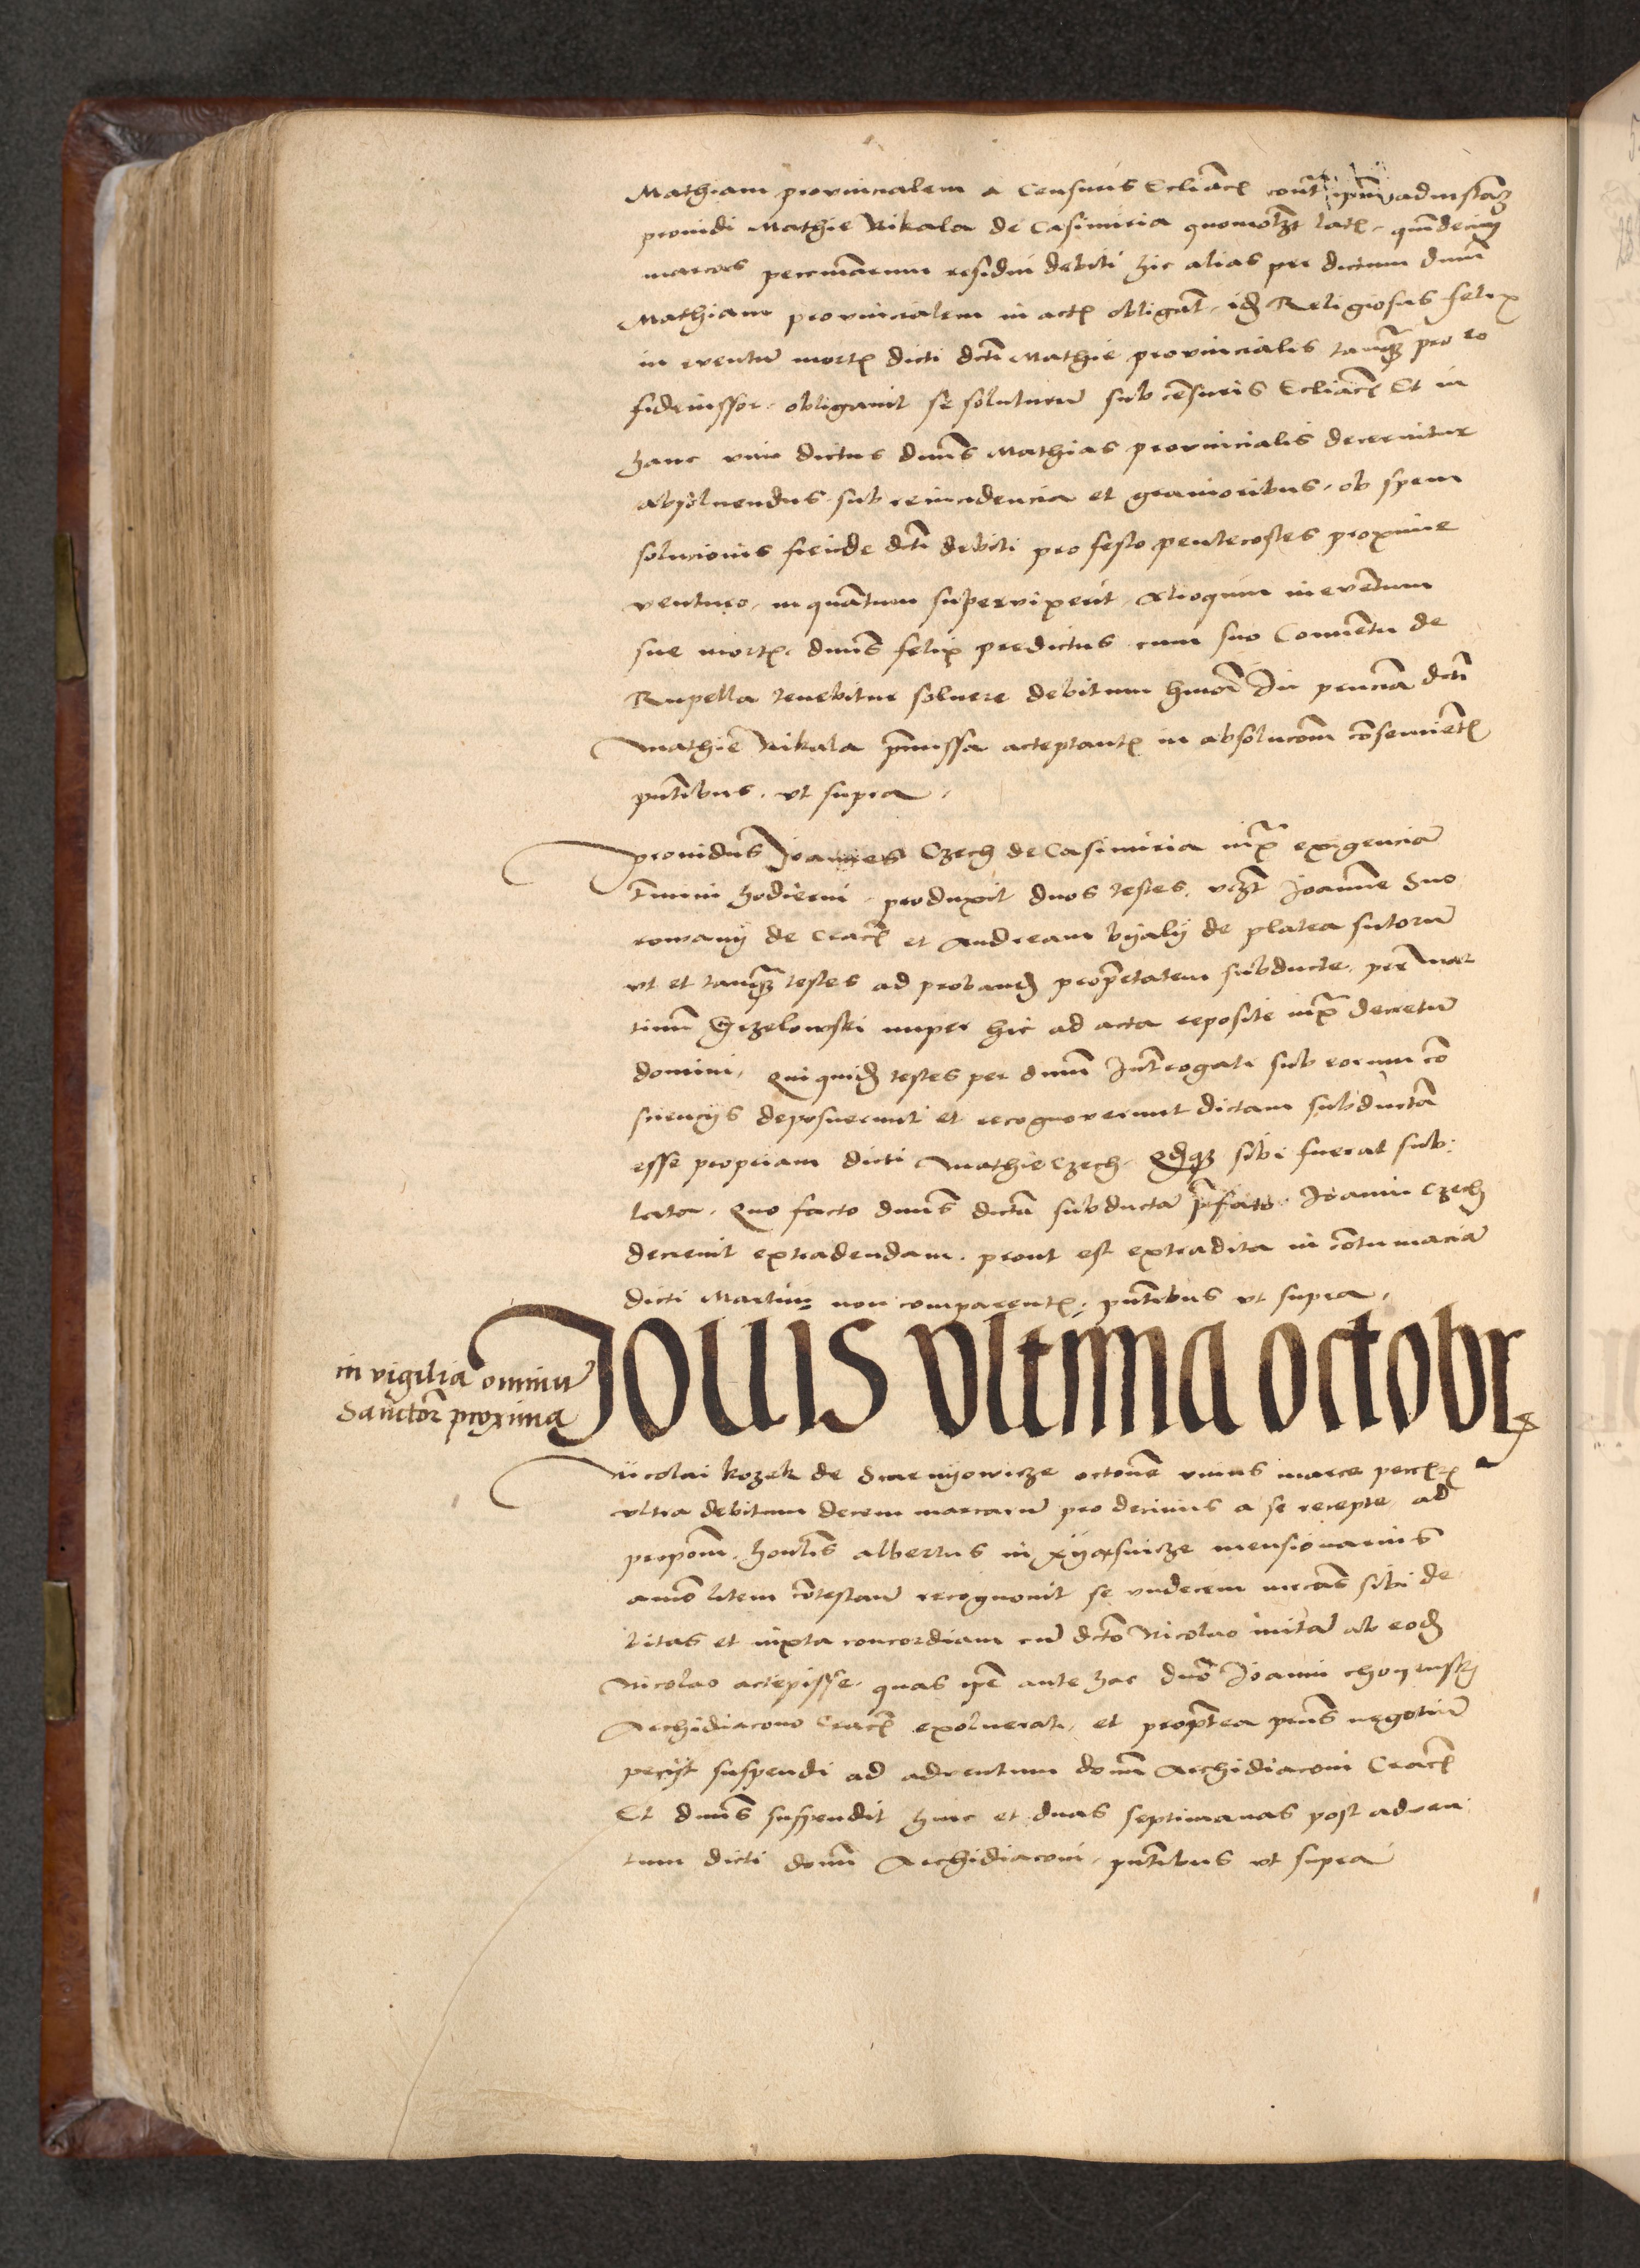 Mathiam provincialem a Censuris Ecliacꝭ contra ipm ad instaꝫ
providi Mathie Nikala de Casimiria quomolꝫt latꝭ. quindecim
marcas pecuniarum residui debiti hic alias per dictum dnm
Mathiam provincialem in actꝭ obligat. idꝫ Religiosus felix
in eventu mortꝭ dicti dni Mathie provincialis tanqꝫ pro eo
fideiussor. obligavit se soluturu sub censuris Ecliacꝭ Et in
hanc vim dictus dnus Mathias provincialis decernitur
absolvendus sub reincidencia et gravioribus. ob spem
solucionis fiende dci debiti pro festo pentecostes proxime
venturo. in quantum supervixerit. Alioquin in eventum
sue mortꝭ. dnus felix predictus cum suo Conventu de
Rupella tenebitur solvere debitum hmoi In pncia dci
Mathie Nikala pmissa acceptantꝭ in absolucom consencientꝭ
pntibus. vt supra.
providus Joannes Czech de Casimiria iuxa exigencia
tmini hodierni. produxit duos testes. vcꝫt Joanne Suo
rowany de Cracꝭ et Andream byaly de platea sutoru
vt et tanqꝫ testes ad probandꝫ proprietatem subducte. per Mar
tinu Grzelowski nuper hic ad acta reposite iuxa decretu
domini. Qui quidꝫ testes per dnum Interogati sub eorum con
sciencijs deposuerunt et recognoverunt dictam subducta
esse propriam dicti Mathie Czech. sibi fuerat sub:
lata. Quo facto dnus dicta subducta pfato Joanni Czech
decrevit extradendam. prout est extradita in contumacia
dicti Martini non comparentꝭ. pntibus vt supra.
in vigilia omniu
Sanctor proxima
Jouis vltima octobrꝭ
Nicolai kozek de Swenyowicze octone vnius marce
vltra debitum decem marcaru pro decimis a se recepte ad
propom. honlis albertus in xyasnicze mensionarius
animo litem contestan recognovit se vndecim mrcas sibi de
bitas et iuxta concordiam cu dcto Nicolao inita ab eodꝫ
Nicolao accepisse. quas ipe ante hac dno Joanni choyenskj
Archidiacono Cracꝭ exolverat. et propterea pns negotiu
pecijt suspendi ad adventum domi Archidiaconi Cracꝭ
Et dnus suspendit hinc et duas septimanas post adven
tum dicti domi Archidiaconi. pntibus vt supra